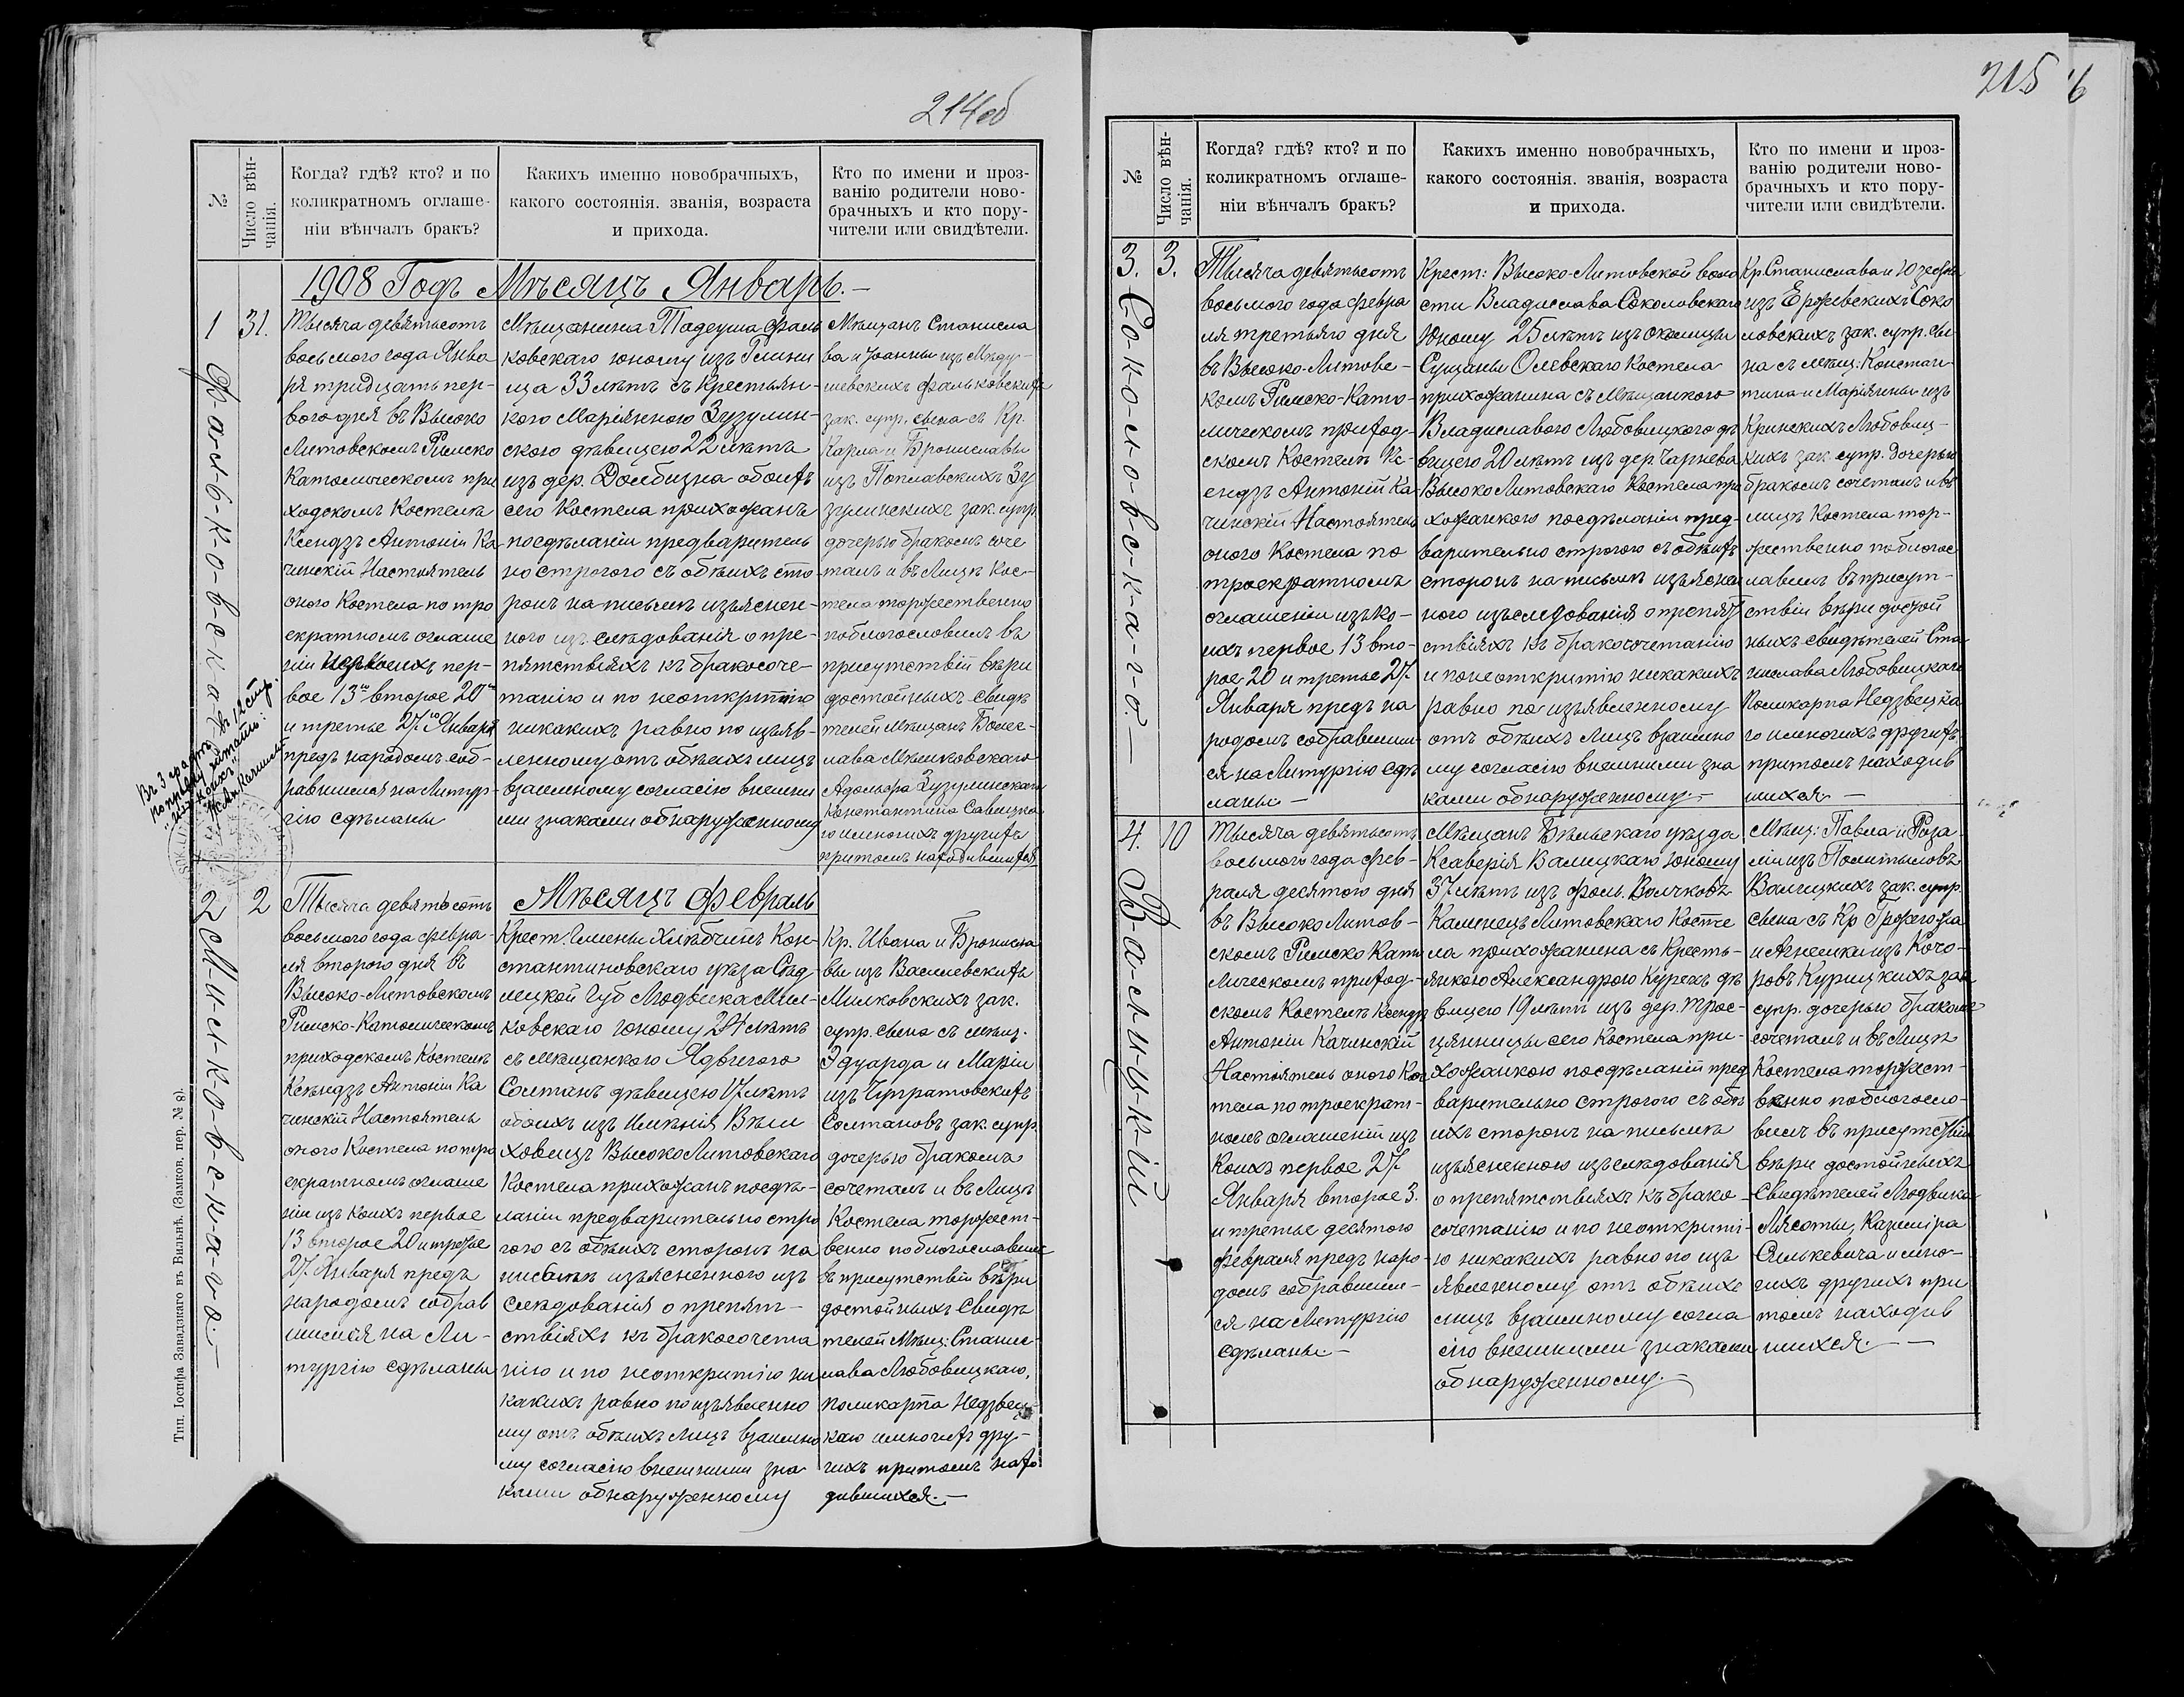 214об
№
Число вѣн-
чанія.
Когда? гдѣ? кто? и по
коликратномъ оглаше-
ніи вѣнчалъ бракъ?
Какихъ именно новобрачныхъ,
какого состоянія. званія, возраста
и прихода.
Кто по имени и проз-
ванію родители ново-
брачныхъ и кто пору-
чители или свидѣтели.
1908 Годъ Мѣсяцъ Январь.-
1
31.
Ф-а-л-ь-к-о-в-с-к-а-
Тысяча девятьсотъ
восьмого года Янва
ря тридцать пер-
вого дня въ Высоко
Литовскомъ Римско
Католическомъ при
ходскомъ Костелѣ
Ксендзъ Антоній Ка
чинскій Настоятель
оного Костела по тро
екратномъ оглаше
ніи пер-
вое 13го второе 20го
и третье 27го Января
предъ народомъ соб-
равшимся на Литур-
гію сдѣланы
Мѣщанина Тадеуша Фаль
ковскаго юношу изъ
ца 33 лѣтъ съ Крестьян-
кого Маріянною Зузулин-
скою дѣвицею 22 лѣтъ
изъ дер. Долбизна обоихъ
сего Костела прихожанъ
посдѣланіи предваритель
но строгого съ обѣихъ сто-
ронъ на письмѣ изъяснен-
ного изъ слѣдованія о пре-
пятствіяхъ къ бракосоче-
танію и по неоткрытію
никакихъ равно по изъяв-
ленному отъ обѣихъ лицъ
взаимному согласію внешни
ми знаками обнаруженному
Мѣщанъ Станисла
ва и Іоанны изъ
Фальковскихъ
зак. супр. сына съ Кр.
Карла и Брониславы
изъ Поплавскихъ Зу
зулинскихъ зак. супр
дочерью бракомъ соче
талъ и въ Лицѣ Кос-
тела торжественно
поблогословилъ въ
присутствій вѣри
достойныхъ свидѣ
телей Мѣщанъ Болес-
лава Мѣшковскаго
Адольфа Зузулинскаго
Константина Савицка
го имногихъ другихъ
притомъ находившихся
Въ 3 графѣ въ 12 стр.
"изъ коихъ"
2
2
М-и-л-к-о-в-с-к-а-г-о.-
Тысяча девятьсотъ
восьмого года Февра-
ля второго дня въ
Высоко-Литовскомъ
Римско-Католическомъ
приходскомъ Костелѣ
Ксендзъ Антоній Ка
чинскій Настоятель
оного Костела по тро
екратномъ оглаше
ніи изъ коихъ первое
13 второе 20 и третье
27 Января предъ
народомъ собрав
шимся на Ли-
тургію сдѣланы
Мѣсяцъ Февраль
Крест. Гмины Хлѣбчинъ Кон-
стантиновскаго уѣзда Сѣд-
лецкой Губ Людвика Мил-
ковскаго юношу 24 лѣтъ
съ мѣщанкого Ядвигого
Солтанъ дѣвицею 17 лѣтъ
обоихъ изъ Имѣнія Вѣли
ховецъ Высоко Литовскаго
Костела прихожанъ посдѣ-
ланіи предварительно стро
гого съ обѣихъ сторонъ на
письмѣ изъясненного изъ
слѣдованія о препят-
ствіяхъ къ бракосочета
нію и по неоткрытію ни
какихъ равно по изъявленно
му отъ обѣихъ лицъ взаимно
му согласію внешними зна
ками обнаруженному
Кр. Ивана и Брониславы
вы изъ Василевскихъ
Милковскихъ зак.
супр. сына съ мѣщ.
Эдуарда и Маріи
изъ
Солтановъ зак. супр
дочерью бракомъ
сочеталъ и въ Лицѣ
Костела торжест-
венно поблогославилъ
въ присутствій вѣри
достойныхъ Свидѣ
телей Мѣщ: Станис-
лава Любовицкаго,
Поликарпа Недзвец-
каго имногихъ дру-
гихъ притомъ нахо
дившихся.-
Тип. Іосифа Завадзкаго въ Вильнѣ. (Замков. пер. № 8).
215
6
№
Число вѣн-
чанія.
Когда? гдѣ? кто? и по
коликратномъ оглаше-
ніи вѣнчалъ бракъ?
Какихъ именно новобрачныхъ,
какого состоянія. званія, возраста
и прихода.
Кто по имени и проз-
ванію родители ново-
брачныхъ и кто пору-
чители или свидѣтели.
3.
3.
С-о-к-о-л-о-в-с-к-а-г-о.-
Тысяча девятьсотъ
восьмого года Февра
ля третьяго дня
въ Высоко-Литовс-
комъ Римско-Като-
лическомъ приход-
скомъ Костелѣ Кс-
ендзъ Антоній Ка-
чинскій Настоятель
оного Костела по
троекратномъ
оглашеніи изъ ко-
ихъ первое 13 вто-
рое 20 и третье 27
Января предъ на
родомъ собравшим-
ся на Литургію сдѣ
ланы-
Крест: Высоко-Литовской воло
сти Владислава Соколовскаго
Юношу 25 лѣтъ изъ околицы
Сущаны Костела
прихожанина съ мѣщанкого
Владиславою Любовицкого дѣ
вицею 20 лѣтъ изъ дер. Чарнева
Высоко Литовскаго Костела при
хожанкого посдѣланіи пред-
варительно строгого съ обѣихъ
сторонъ на письмѣ изъяснен
ного изъслѣдованія о препят
ствіяхъ къ бракосочетанію
и понеоткрытію никакихъ
равно по изъявленному
отъ обѣихъ лицъ взаимно
му согласію внешними зна
ками обнаруженному.-
Кр. Станислава и Юзефы
изъ Соко
ловскихъ зак. супр. сы
на съ мѣщ: Констан-
тина и Маріянны изъ
Кринскихъ Любовиц-
кихъ зак. супр. дочерью
бракомъ сочеталъ и въ
лицѣ Костела тор-
жественно поблогос
лавилъ въ присут-
ствіи вѣри достой
ныхъ свидѣтелей Ста
нислава Любовицкаго
Поликарпа Недзвецка
го имногихъ другихъ
притомъ находив
шихся.-
4.
10
В-а-л-и-ц-к-ій
Тысяча девятьсотъ
восьмого года Фев-
раля десятого дня
въ Высоко Литов-
скомъ Римско Като
лическомъ приход-
скомъ Костелѣ Ксендзъ
Антоніи Качинскій
Настоятель оного Кос
тела по троекрат-
номъ оглашеній изъ
Коихъ первое 27
Января второе 3.
и третье десятого
Февраля предъ наро-
домъ собравшим-
ся на Литургію
сдѣланы.-
Мѣщанъ Бѣльскаго уѣзда
Ксаверія Валицкаго юношу
37 лѣтъ изъ фоль. Волчковъ
Каменецъ Литовскаго Косте
ла прихожанина съ Кресть-
янкою Александрою Курецъ дѣ
вицею 19 лѣтъ изъ дер. Трос-
цянницы сего Костела при-
хожанкою посдѣланій пред
варительно строгого съ обѣ
ихъ сторонъ на письмѣ
изъясненного изъслѣдованія
о препятствіяхъ къ брако-
сочетанію и по неоткрыті-
ю никакихъ равно по изъ
явленному отъ обѣихъ
лицъ взаимному согла
сію внешними знаками
обнаруженному.-
Мѣщ: Павла и Роза
ліи изъ
Валицкихъ зак. супр.
сына съ Кр
и Агнешки изъ Кочо-
ровъ Курицкихъ зак
супр. дочерью бракомъ
сочеталъ и въ Лицѣ
Костела торжест-
венно поблогосло-
вилъ въ присутствіи
вѣри достойныхъ
Свидѣтелей Людвика
Лясоты, Казиміра
Силькевича и мно-
гихъ другихъ при
томъ находив
шихся.-